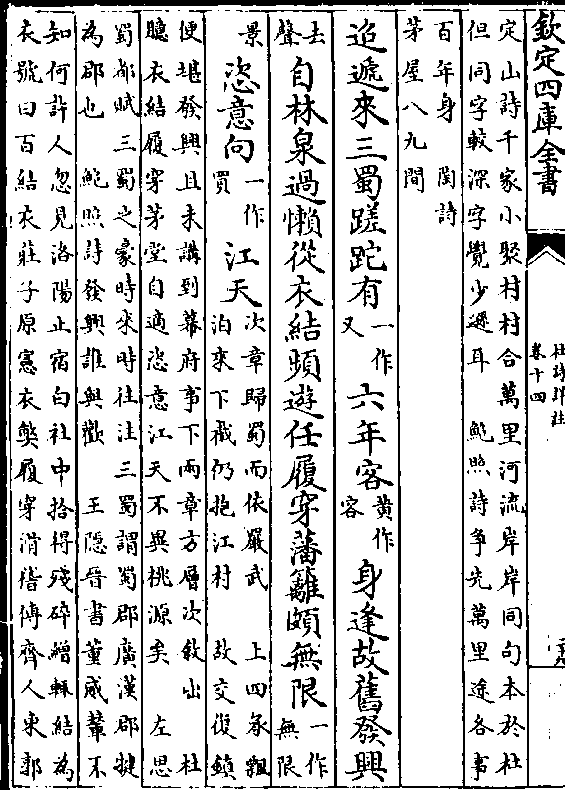 欽定四庫全書
杜詩詳註
卷十四
定山詩千家小聚村村合萬里河流岸岸同句本於杜
但同字較深字覺少遜耳　鮑照詩争先萬里途各事
百年身　詩
茅屋八九間
迢遞來三蜀蹉跎有一作又六年客黄作容身逢故舊發興
去聲自林泉過懶從衣結頻遊任履穿藩籬頗無限一作無限
景恣意向一作買江天次章歸蜀而依嚴武　上四承飄
泊來下截仍抱江村　故交復鎮
便堪發興且未講到幕府事下兩章方層次敘出　杜
臆衣結履穿茅堂自適恣意江天不異桃源矣　左思
蜀都賦三蜀之豪時來時往注三蜀謂蜀郡廣漢郡揵
為郡也　鮑照詩發興誰與歡　王隱晉書董威輦不
知何許人忽見洛陽止宿白社中拾得殘碎繒輒結為
衣號曰百結衣莊子原憲衣獘履穿滑稽傳齊人東郭